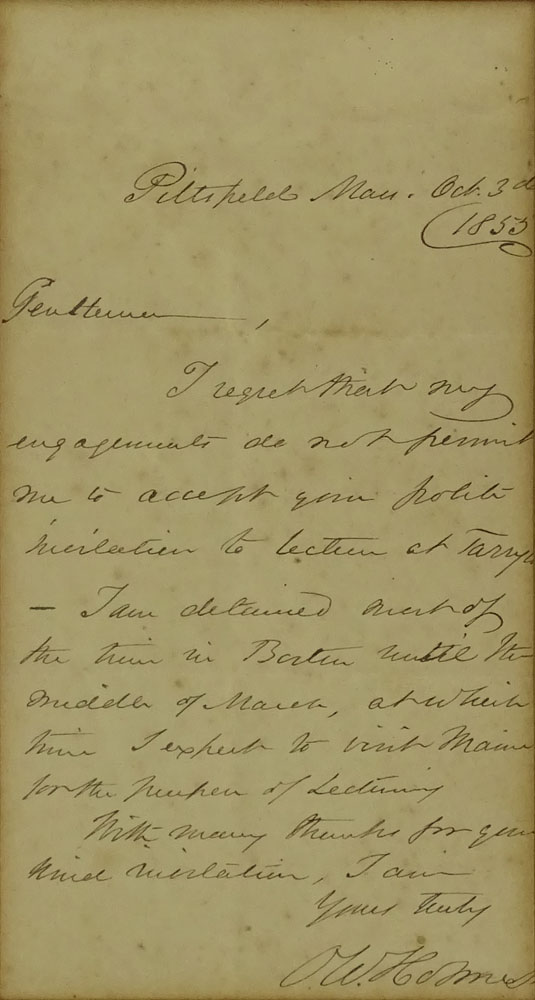 Pittsfield Mass. Oct. 3d
1855
Gentlemen,
I regret that my
engagements do not permit
me to accept your polite
invitation to lecture at Tarryt
– I am detained most of
the time in Boston until the
middle of March, at which
time I expect to visit Maine
for the purpose of Lecturing
With many thanks for your
kind invitation, I am
Yours truly
O. W. Holmes